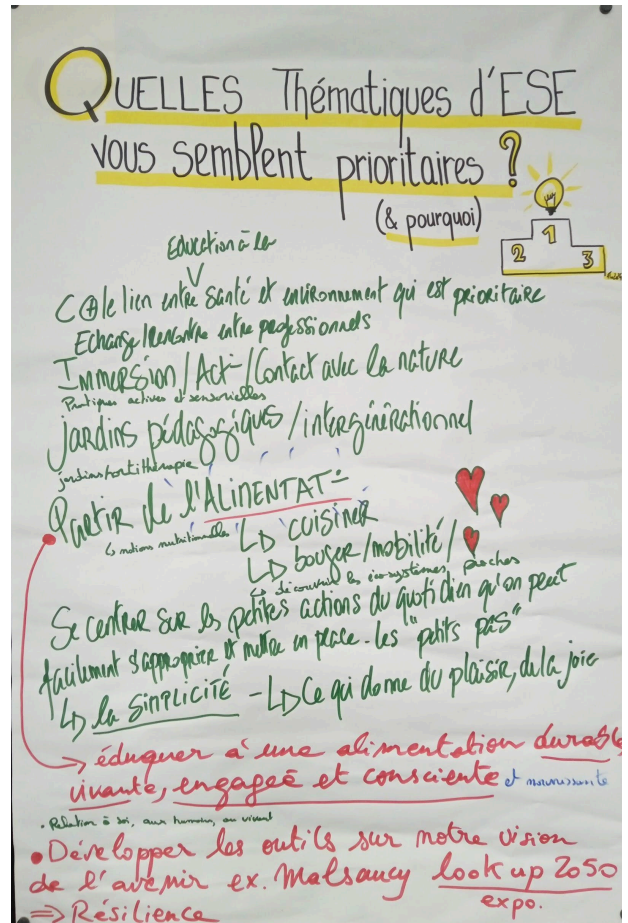 QUELLES Thématiques d'ESE
vous semblent prioritaires ?
(& pourquoi)
1
2
3
Education à la
C le lien entre Santé et environnement qui est prioritaire
Echange/Rencontre entre professionnels
Immersion/Act°/Contact avec la nature
Pratiques actives et sensorielles
Jardins pédagogiques/intergénérationnel
jardins/hortithérapie
Partir de l'ALIMENTAT°
↳ notions nutritionnelles
↳ cuisiner
↳ bouger/mobilité/
↳ découvrir les écosystèmes proches
Se centrer sur les petites actions du quotidien qu'on peut
facilement s'approprier et mettre en place - les "petits pas"
↳ la SIMPLICITÉ - ↳ Ce qui donne du plaisir, de la joie
→ éduquer à une alimentation durable
vivante, engagée et consciente et nourrissante
• Relation à soi, aux humains, au vivant
• Développer les outils sur notre vision
de l'avenir ex. Malsaucy look up 2050
expo.
⇒ Résilience